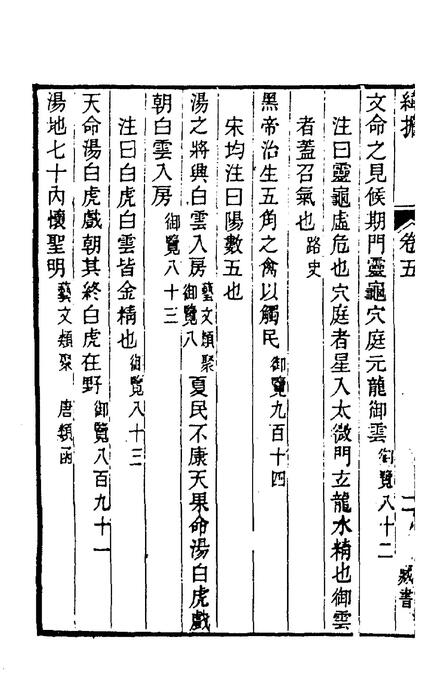 緯攟
卷五
文命之見候期門靈龜穴庭元龍御雲御覽八十二
注曰靈龜虛危也穴庭者星入太微門玄龍水精也御雲
者蓋召氣也路史
黑帝治生五角之禽以觸民御覽九百十四
宋均注曰陽數五也
湯之將興白雲入房藝文類聚御覽八夏民不康天果命湯白虎戲
朝白雲入房御覽八十三
注曰白虎白雲皆金精也御覽八十三
天命湯白虎戲朝其終白虎在野御覽八百九十一
湯地七十內懷聖明藝文類聚唐類函
藏書